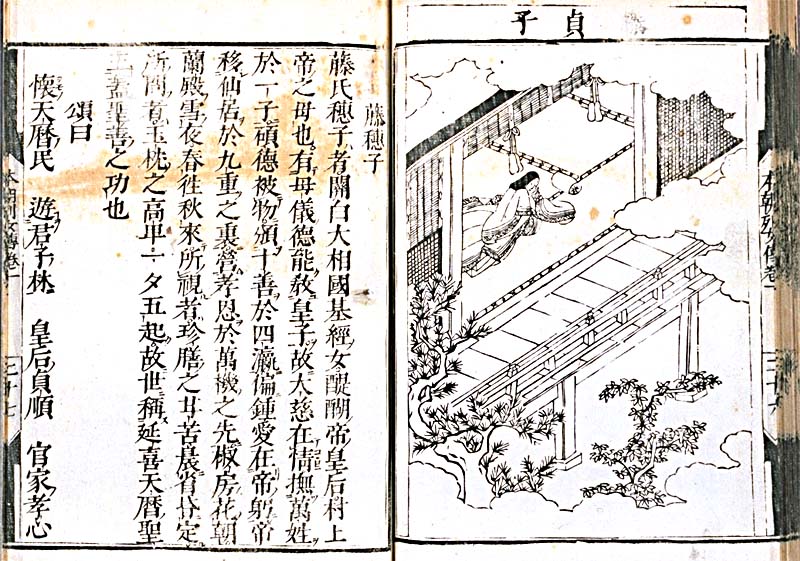 貞子
本朝列女傳卷一
二十六
藤穗子
藤氏穗子者關白大相國基經女醍醐帝皇后村上
帝之母也有母儀德能教皇子故大慈在情撫萬姓
於一子碩德被物頒十善於四瀛偏鍾愛在帝躬帝
移仙居於九重之裏營孝恩於萬機之先椒房花朝
蘭殿雪夜春徃秋來所視者珍膳之甘苦晨省昏定
所問者玉枕之高卑一夕五起故世稱延喜天曆聖
主蓋聖善之功也
頌曰
懷天曆氏 遊君子林 皇后貞順 官家孝心
本朝列女傳卷一
二十七